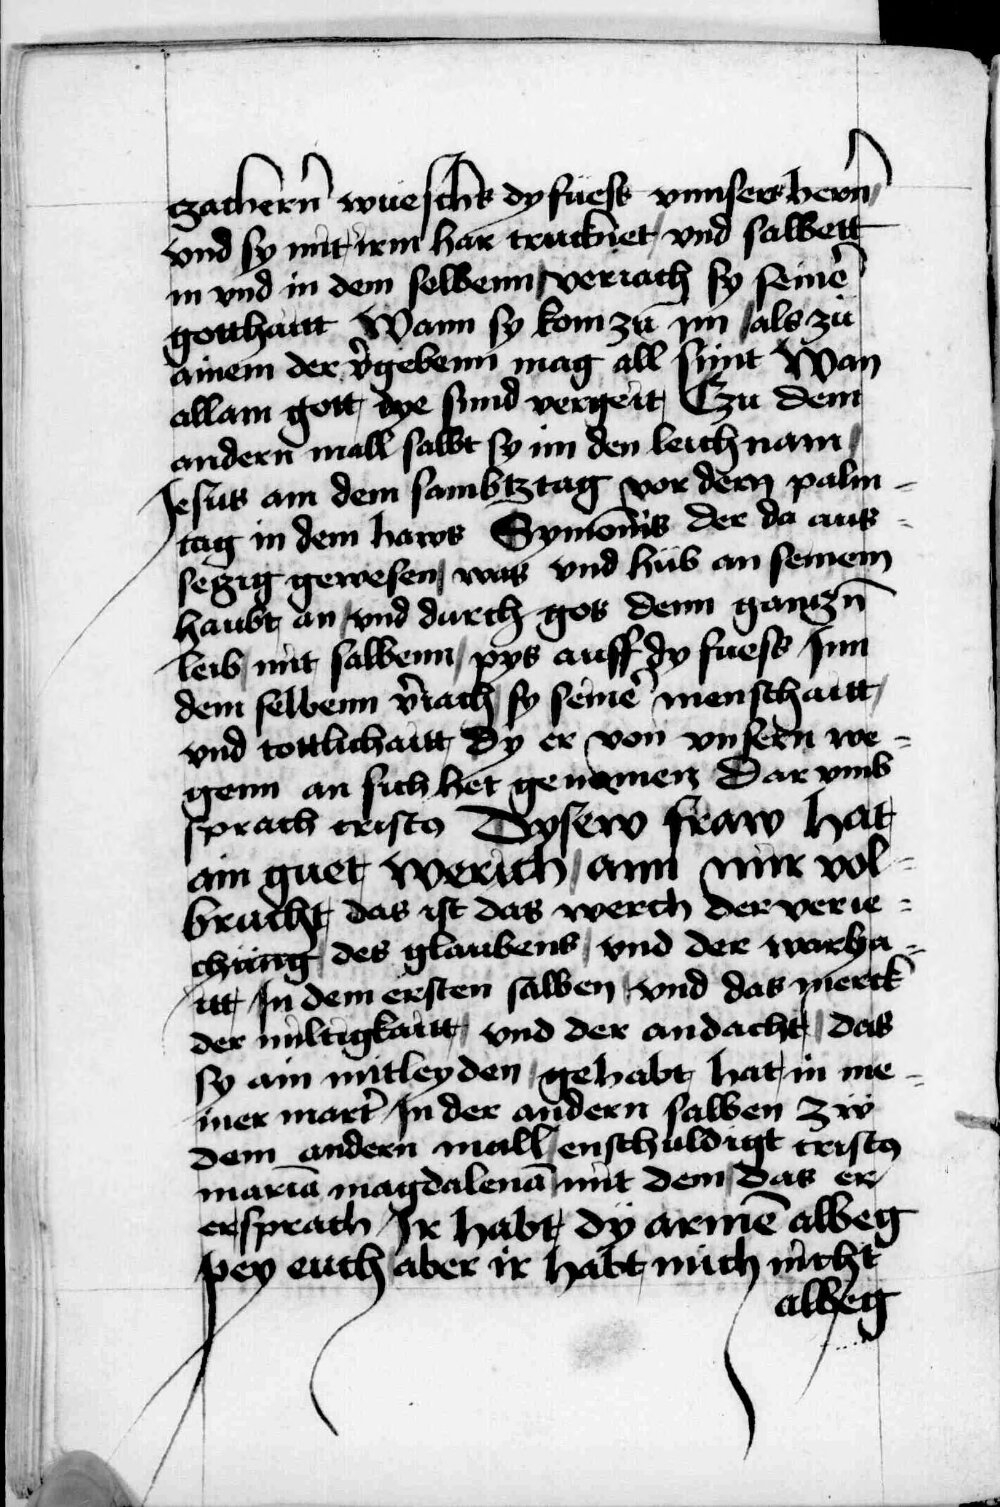 zachern̄ wüeschs dy füess vnnsers hern̄ /
vnd sy mit irm har trucknet / vnd salbett
in vnd in dem selbenn / veriach sy seinē
gotthaitt Wann sy kom zü im / als zü
ainem der v̄gebenn mag all sünt Wan
allain gott dye sünd vergeit / Czu dem
andern mall salbt sy im den leichnam /
Jesüs am dem sambtztag vor dem palm =
tag in dem haws Symonis der da aus =
seczig gewesen was vnd hüb an seinem
haubt an / vnd durch gos denn ganczn̄
leib mit salbenn / pys auff dy fuess Inn
dem selbenn v̄iach sy seinē menschaitt /
vnd tottlichaitt dy er von vnsern we =
genn an sich het genomen Dar vmb
sprach cristo Dysew fraw hat
ain guet werich / ann mir vol =
bracht das ist das werch der verie =
chüng des glaubens / vnd der warha =
itt / In dem ersten salben / vnd das merck
der miltigkaitt / vnd der andacht / das
sy ain mitleyden / gehabt hat in me =
iner mart̄ In der andern salben zw
dem andern mall enschuldigt cristo
mariā magdalenā mit dem / das er
ersprach Ir habt dÿ armē albeg
pey euch aber ir habt mich nicht
albeg